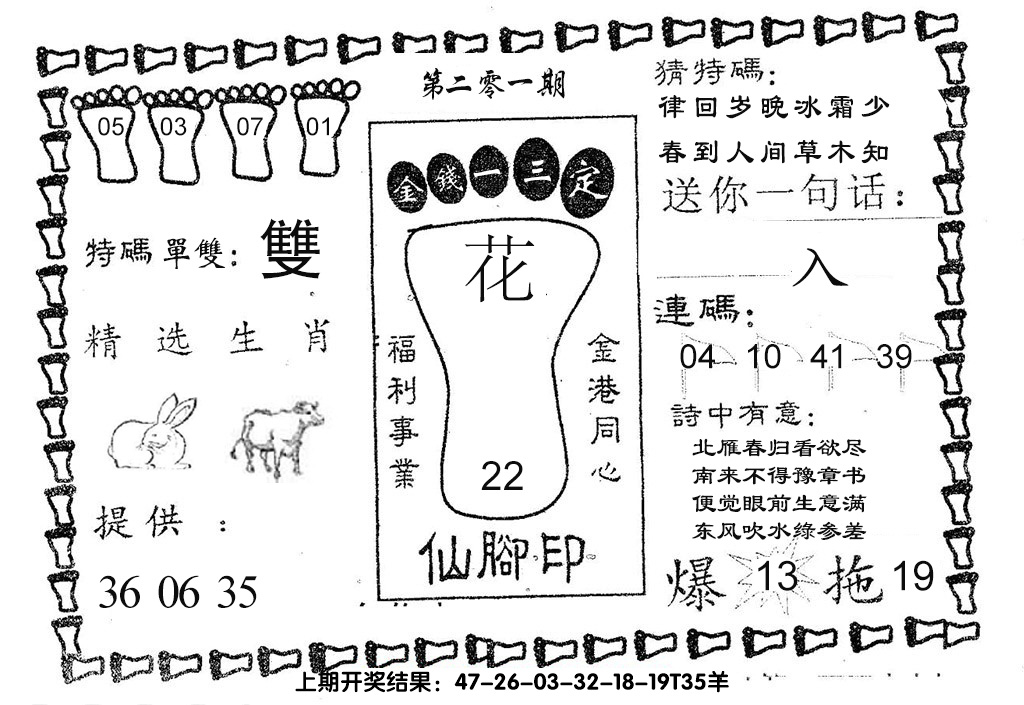 第二零一期
05 03 07 01
特碼單雙：雙
精选生肖
提供：
36 06 35
金錢一三定
花
福利事業
金港同心
22
仙腳印
猜特碼：
律回岁晚冰霜少
春到人间草木知
送你一句话：
入
連碼：
04 10 41 39
詩中有意：
北雁春归看欲尽
南来不得豫章书
便觉眼前生意满
东风吹水绿参差
爆 13 拖 19
上期开奖结果：47-26-03-32-18-19T35羊